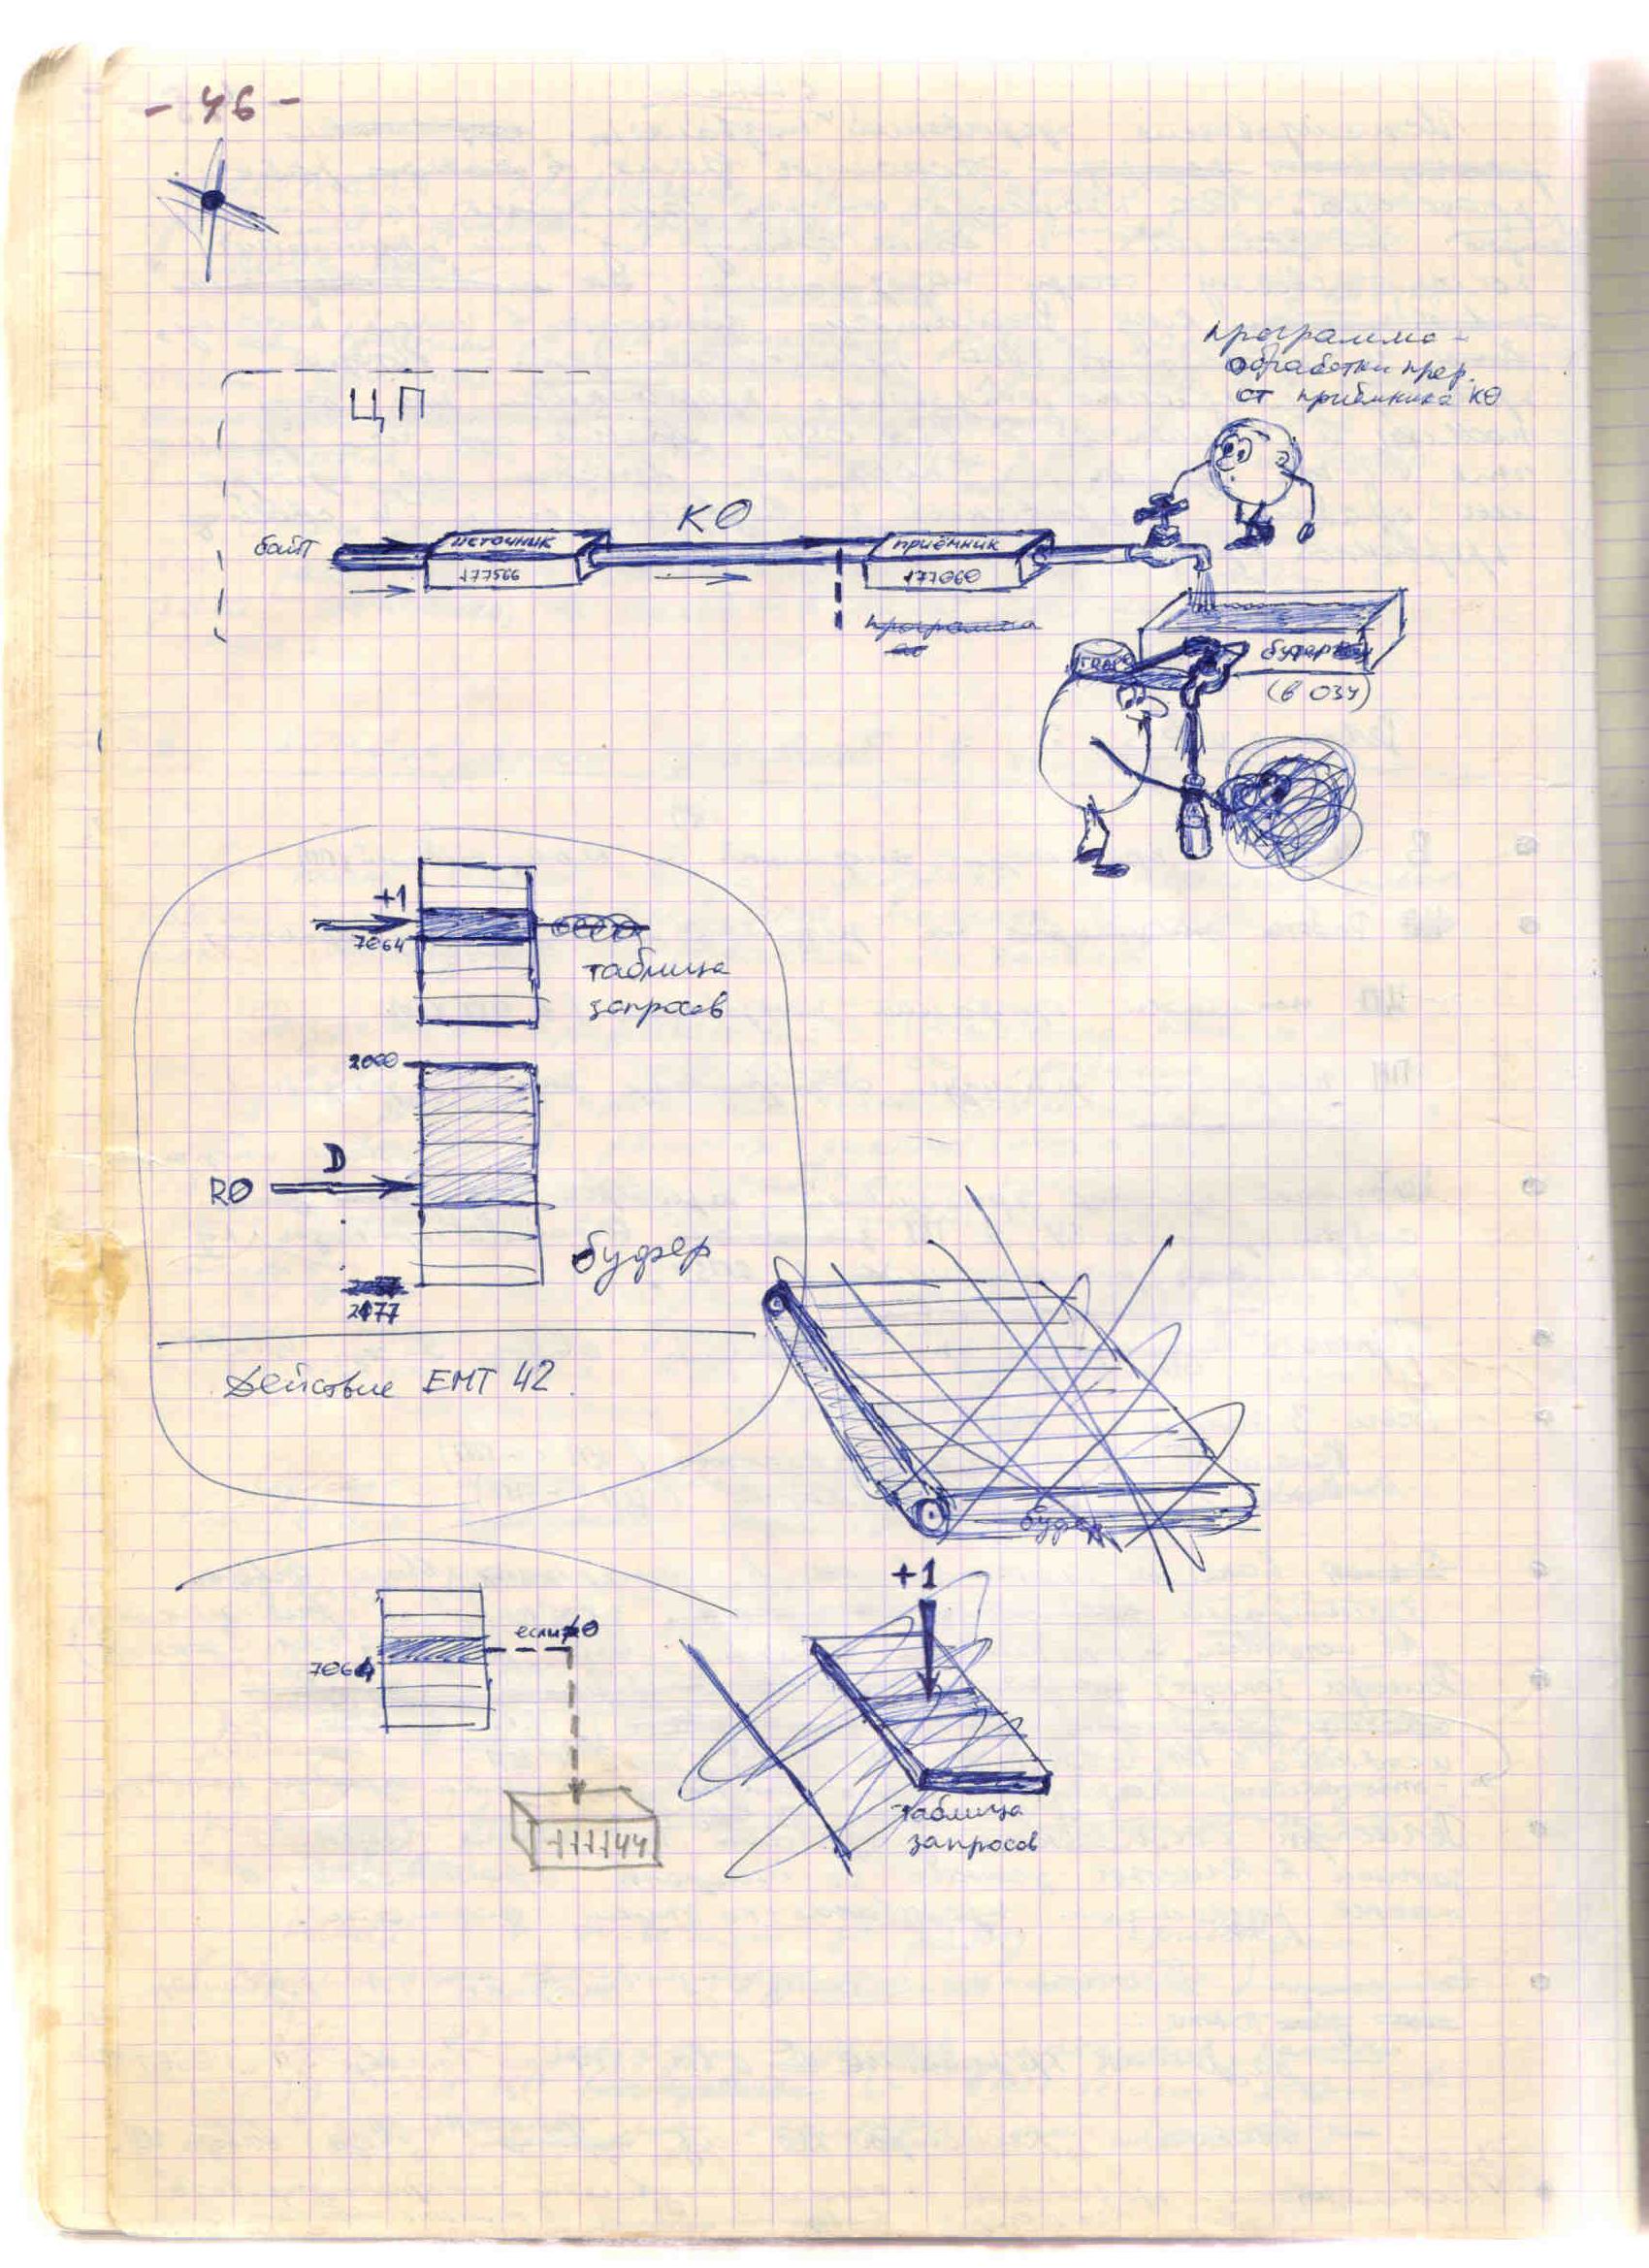 - 46 -
ЦП
программа -
обработки прер.
от приёмника К0
К0
байт
источник
177566
приёмник
177060
программа
буфер
(в ОЗУ)
+1
7064
таблица
запросов
2000
D
R0
буфер
2177
Действие EMT 42.
буфер
+1
если≠0
7064
177744
таблица
запросов